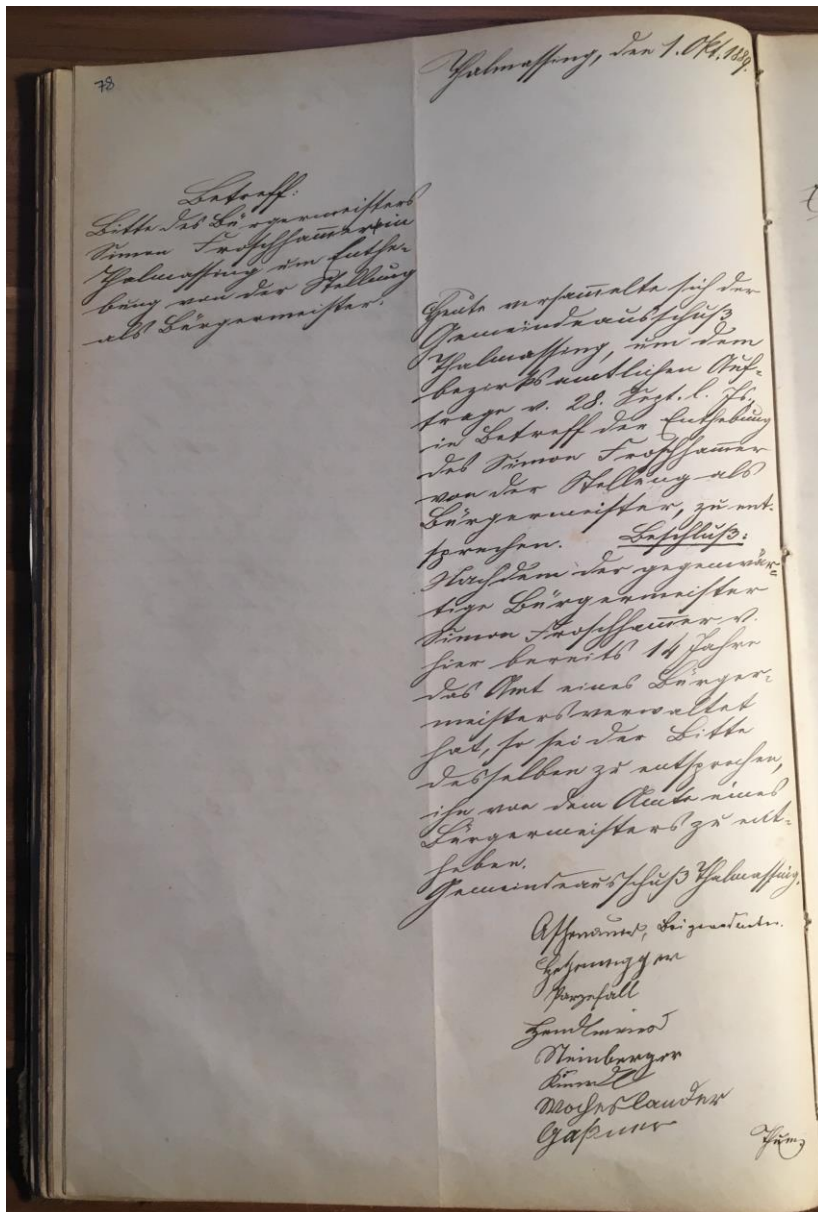 78
Thalmassing, den 1. Okt. 1889.
Betreff:
Bitte des Bürgermeisters
Simon Froschhammer in
Thalmassing um Enthe-
bung von der Stellung
als Bürgermeister.
Heute versammelte sich der
Gemeindeausschuß
Thalmassing, um dem
bezirksamtlichen Auf-
trage v. 28. Sept. l. Js.,
in Betreff der Enthebung
des Simon Froschhammer
von der Stellung als
Bürgermeister, zu ent-
sprechen. Beschluß:
Nachdem der gegenwär-
tige Bürgermeister
Simon Froschhammer v.
hier bereits 14 Jahre
das Amt eines Bürger-
meisters verwaltet
hat, so sei der Bitte
desselben zu entsprechen,
ihn von dem Amte eines
Bürgermeisters zu ent-
heben.
Gemeindeausschuß Thalmassing.
Beigeordneter.
Parzefall
Steinberger
Wocheslander
Gaßner